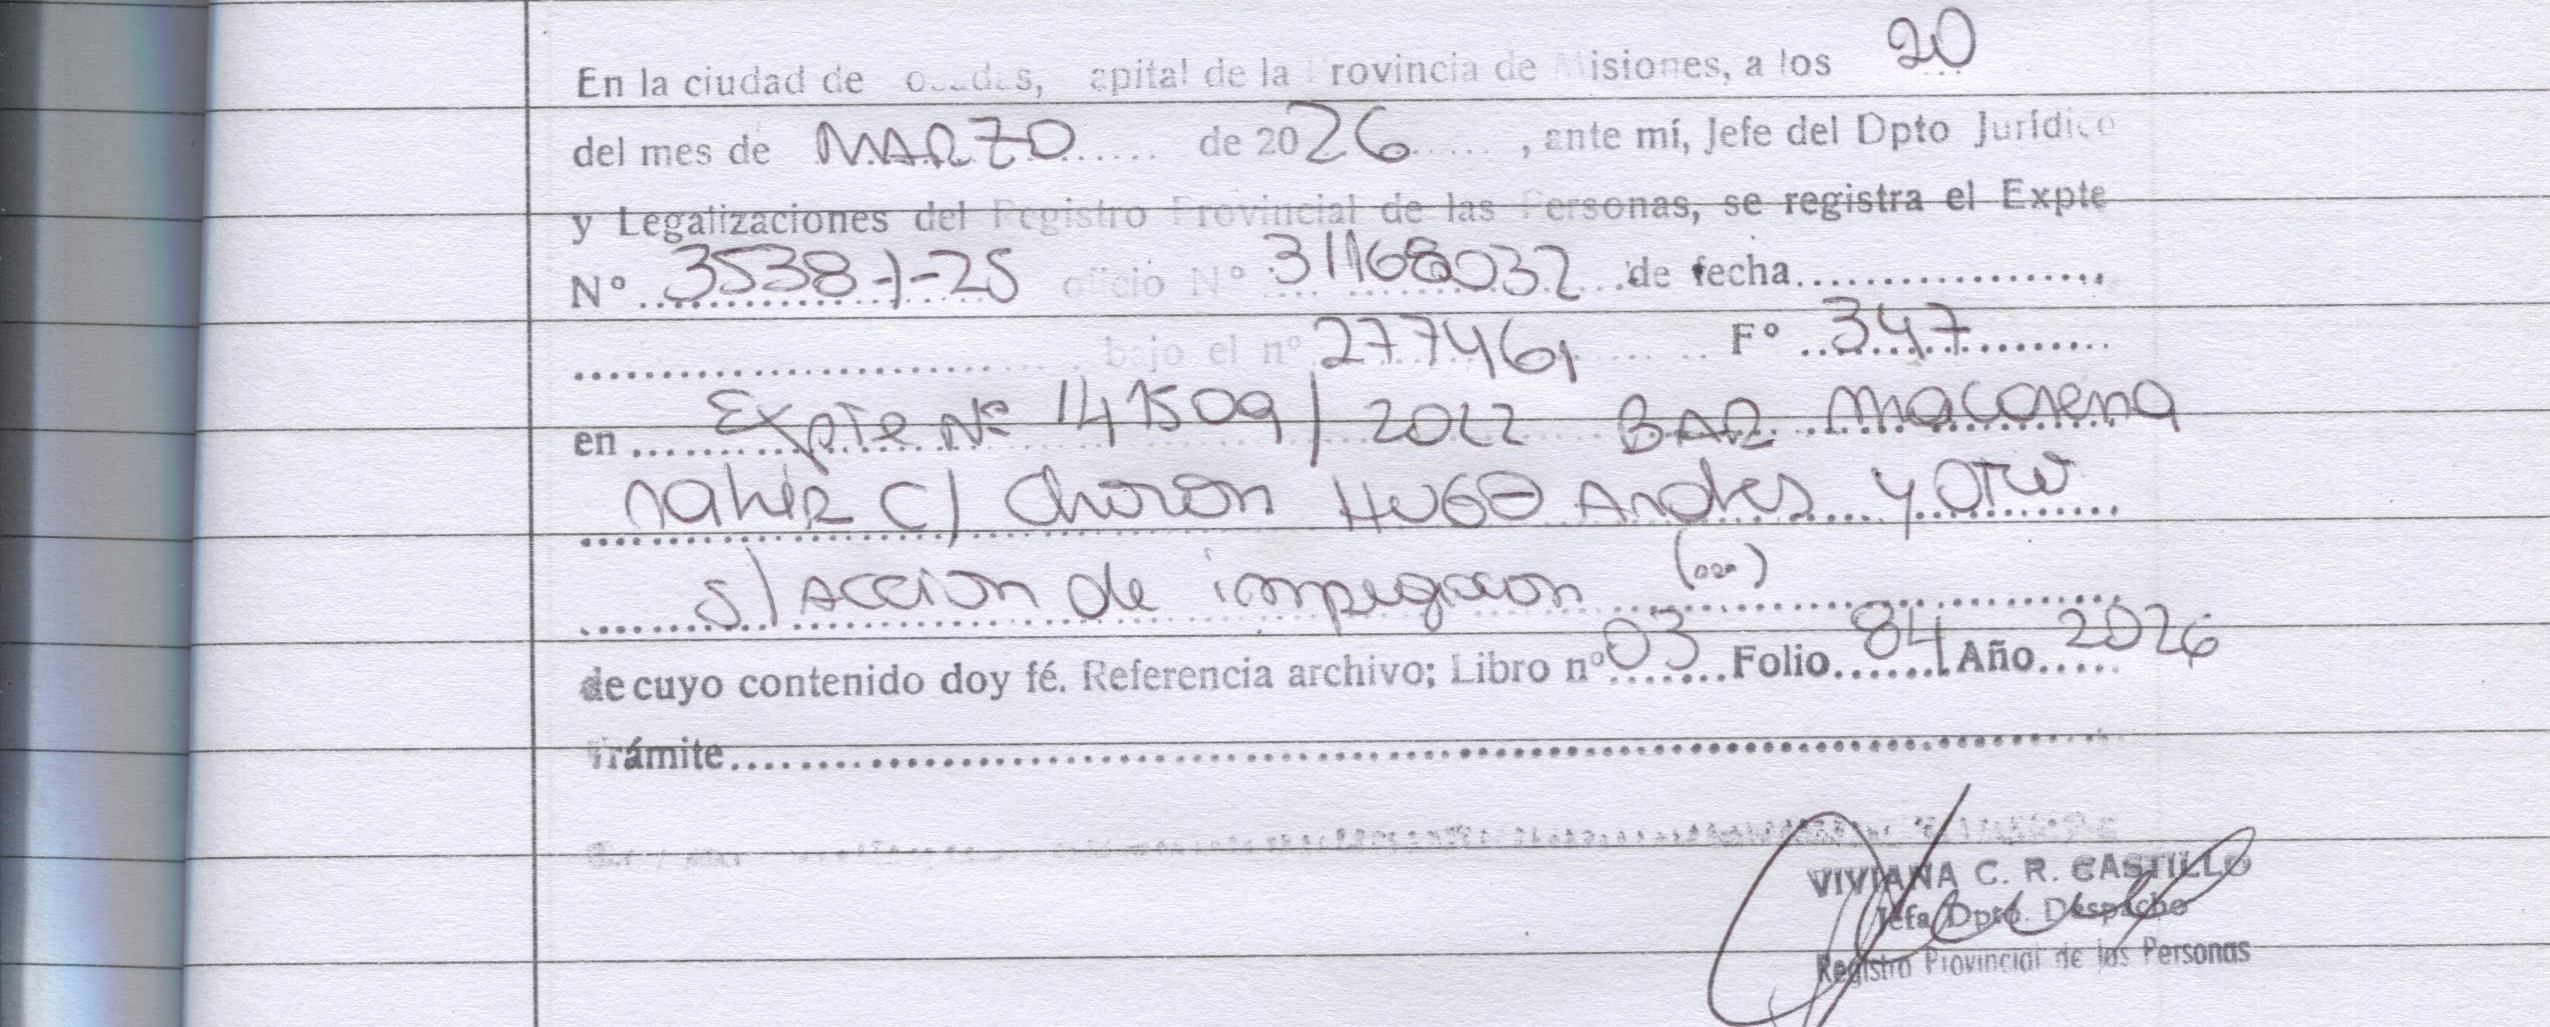 En la ciudad de osadas, apital de la Provincia de Misiones, a los 20
del mes de MARZO de 2026, ante mí, Jefe del Dpto Jurídico
y Legalizaciones del Registro Provincial de las Personas, se registra el Expte
Nº 3538-1-25 oficio Nº 31168032 de fecha
bajo el nº 277461 Fº 347
en Expte Nº 141509/2022 BAR Macarena
Nahir C/ Andres y otro
S/ Accion de (...)
de cuyo contenido doy fé. Referencia archivo; Libro nº 03 Folio 84 Año 2026
Trámite
VIVIANA C. R. CASTILLO
Jefa Dpto. Despacho
Registro Provincial de las Personas